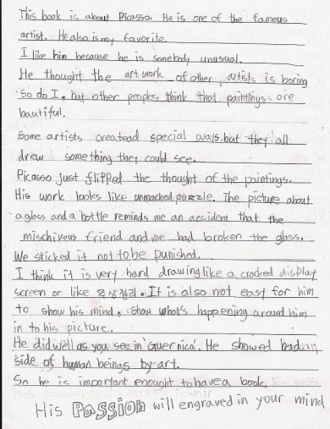 This book is about Picasso. He is one of the famous
artist. He also is my favorite.
I like him because he is somebody unusual.
He thought the art work of other artists is boring
So do I. but other peoples think that paintings are
bautiful.
Some artists createad special ways. but they all
drew something they could see.
Picasso just flipped the thought of the paintings.
His work looks like unmached puzzle. The picture about
a glass and a bottle reminds me an accident that the
mischivous friend and me had broken the glass.
We sticked it not to be punished.
I think it is very hard drawing like a cracked display
screen or like. It is also not easy for him
to show his mind, show what's happening around him
in to his picture.
He did well as you see in 'Guernica'. He showed bad
side of human beings by art.
So he is important enought to have a book.
His Passion will engraved in your mind